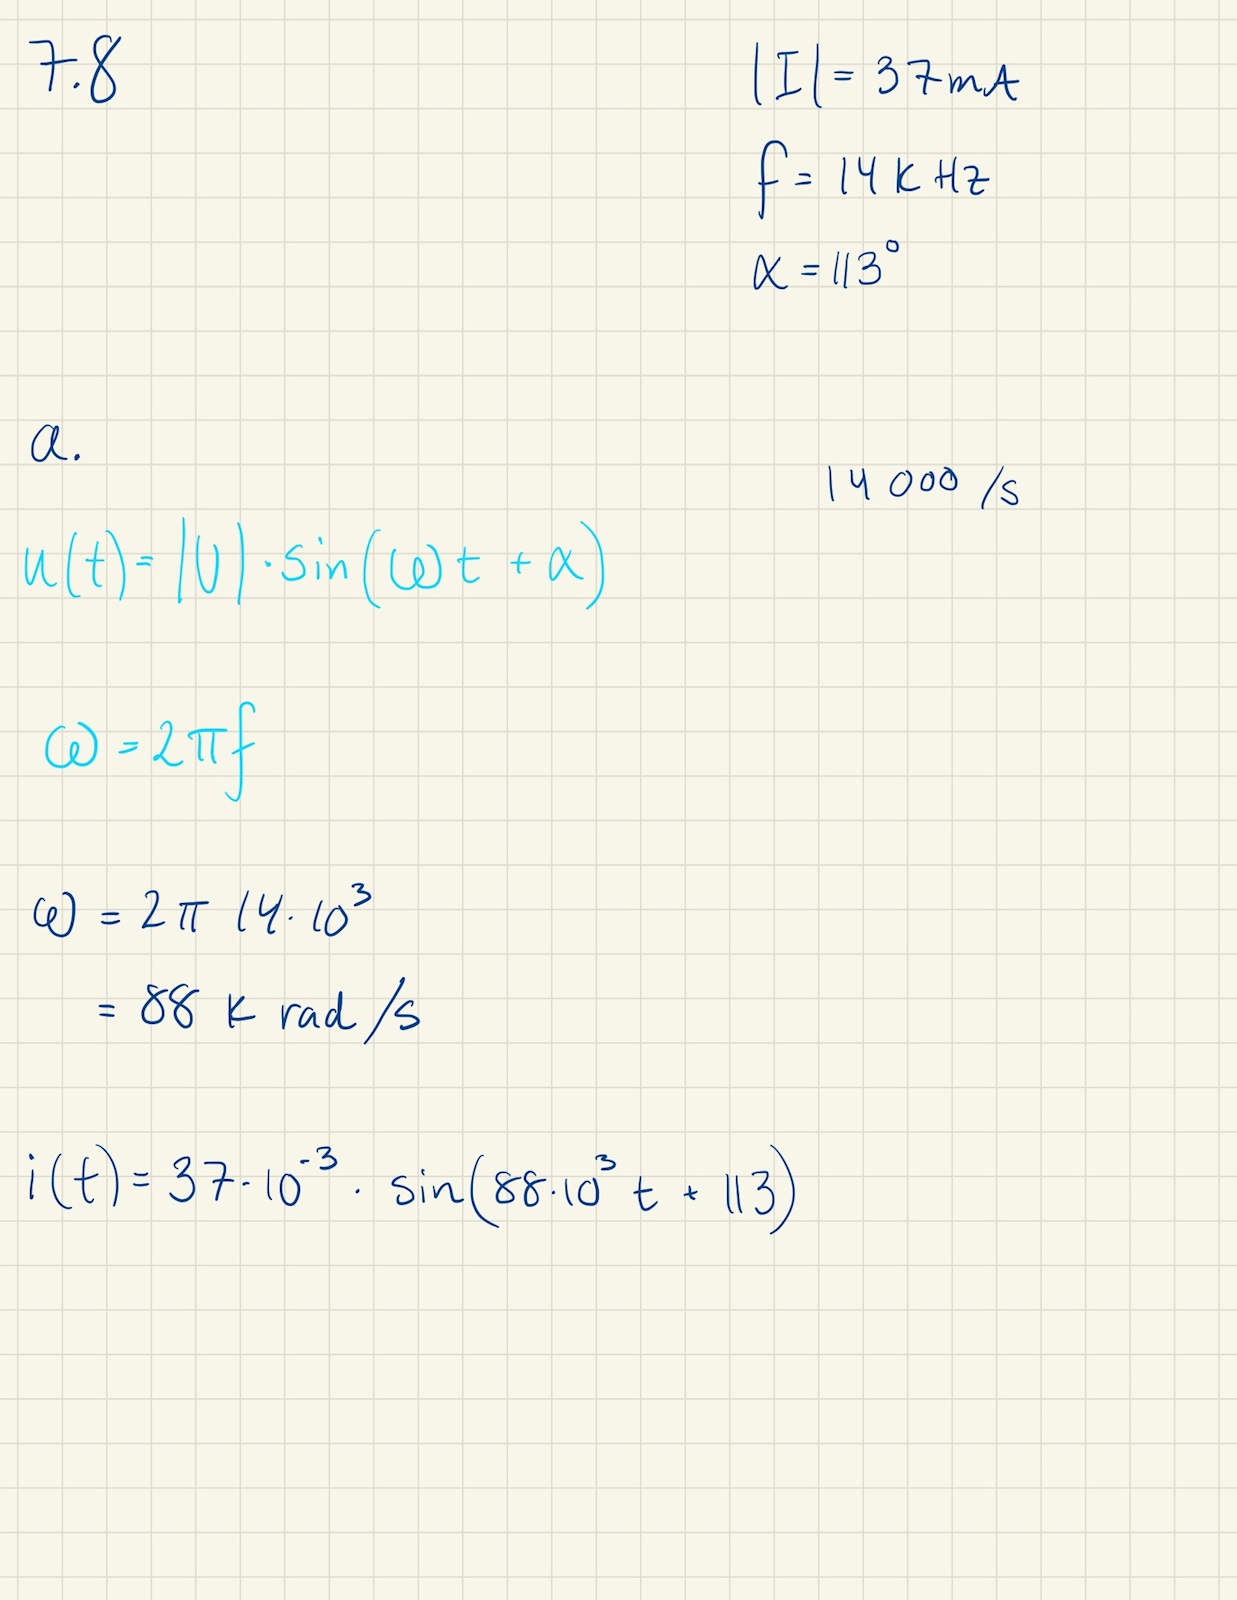 7.8
|I| = 37mA
f = 14 K HZ
α = 113°
a.
14 000 /s
u(t) = |U| · sin(ωt + α)
ω = 2πf
ω = 2π 14 · 10³
= 88 K rad/s
i(t) = 37 · 10⁻³ · sin(88 · 10³ t + 113)